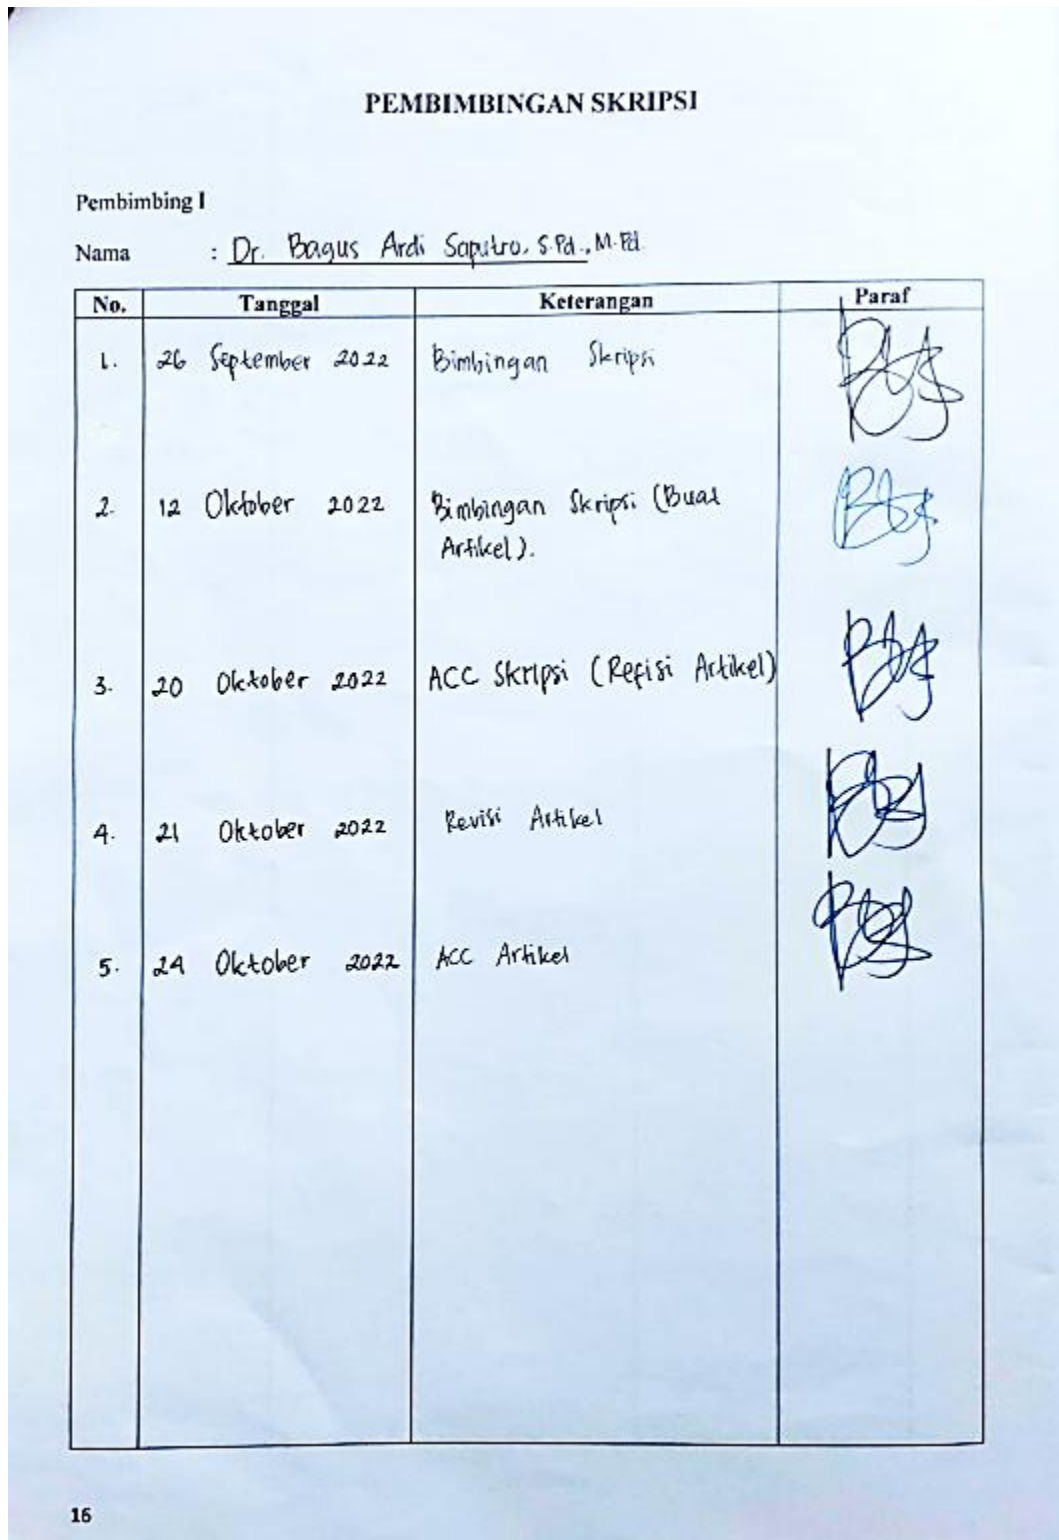 PEMBIMBINGAN SKRIPSI
Pembimbing I
Nama : Dr. Bagus Ardi Saputro, S.Pd., M.Pd.
No. Tanggal Keterangan Paraf
1. 26 September 2022 Bimbingan Skripsi
2. 12 Oktober 2022 Bimbingan Skripsi (Buat
Artikel).
3. 20 Oktober 2022 ACC Skripsi (Refisi Artikel)
4. 21 Oktober 2022 Revisi Artikel
5. 24 Oktober 2022 ACC Artikel
16